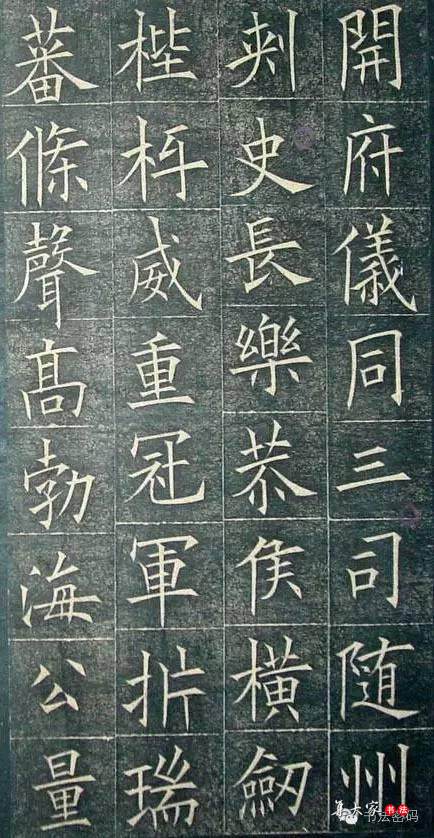 開府儀同三司随州
刾史長樂恭侯橫劒
梐枑威重冠軍扸瑞
蕃條聲髙勃海公量
集大家 书法
书法密码